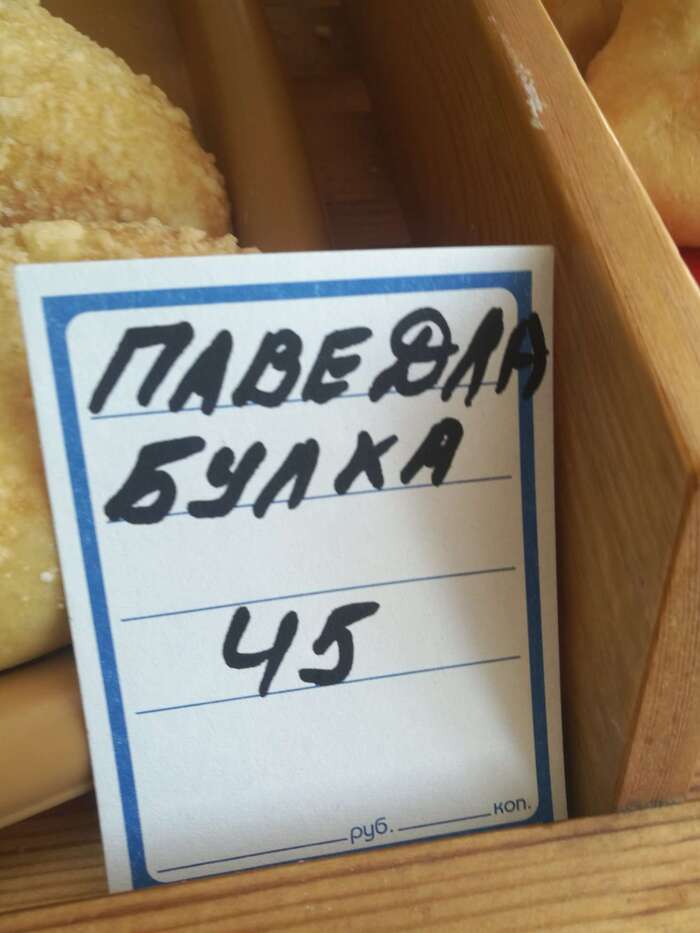 ПАВЕДЛА
БУЛКА
45
руб. коп.